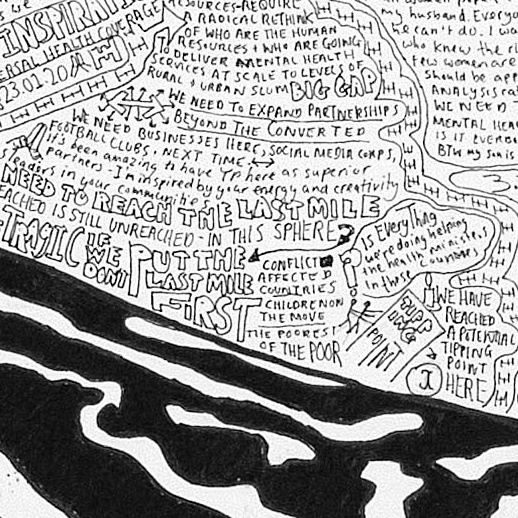 INSPIRATI
ERSAL HEALTH COVERAGE
23.01.20
RESOURCES-REQUIRE
A RADICAL RETHINK
OF WHO ARE THE HUMAN
RESOURCES + WHO ARE GOING
TO DELIVER MENTAL HEALTH
SERVICES AT SCALE TO LEVELS OF
RURAL + URBAN SLUM BIG GAP
WE NEED TO EXPAND PARTNERSHIPS
BEYOND THE CONVERTED
WE NEED BUSINESSES HERE, SOCIAL MEDIA CORPS,
FOOTBALL CLUBS, NEXT TIME
it's been amazing to have YP here as superior
partners - I'm inspired by your energy and creativity
leaders in your communities
NEED TO REACH THE LAST MILE
EACHED IS STILL UNREACHED - IN THIS SPHERE?
TRAGIC IF WE DON'T
PUT THE
LAST MILE
FIRST
CONFLICT
AFFECTED
COUNTRIES
CHILDREN ON
THE MOVE
THE POOREST
OF THE POOR
IS Everything
we're doing helping
the health ministers
in those countries
TIPPING
POINT
WE HAVE
REACHED
A POTENTIAL
TIPPING
POINT
HERE
my husband. Everyo
we can't do. I wa
who knew the
few women are
should be app
ANALYSIS
WE NEED T
MENTAL HEA
IS IT
BTW my son is
3.